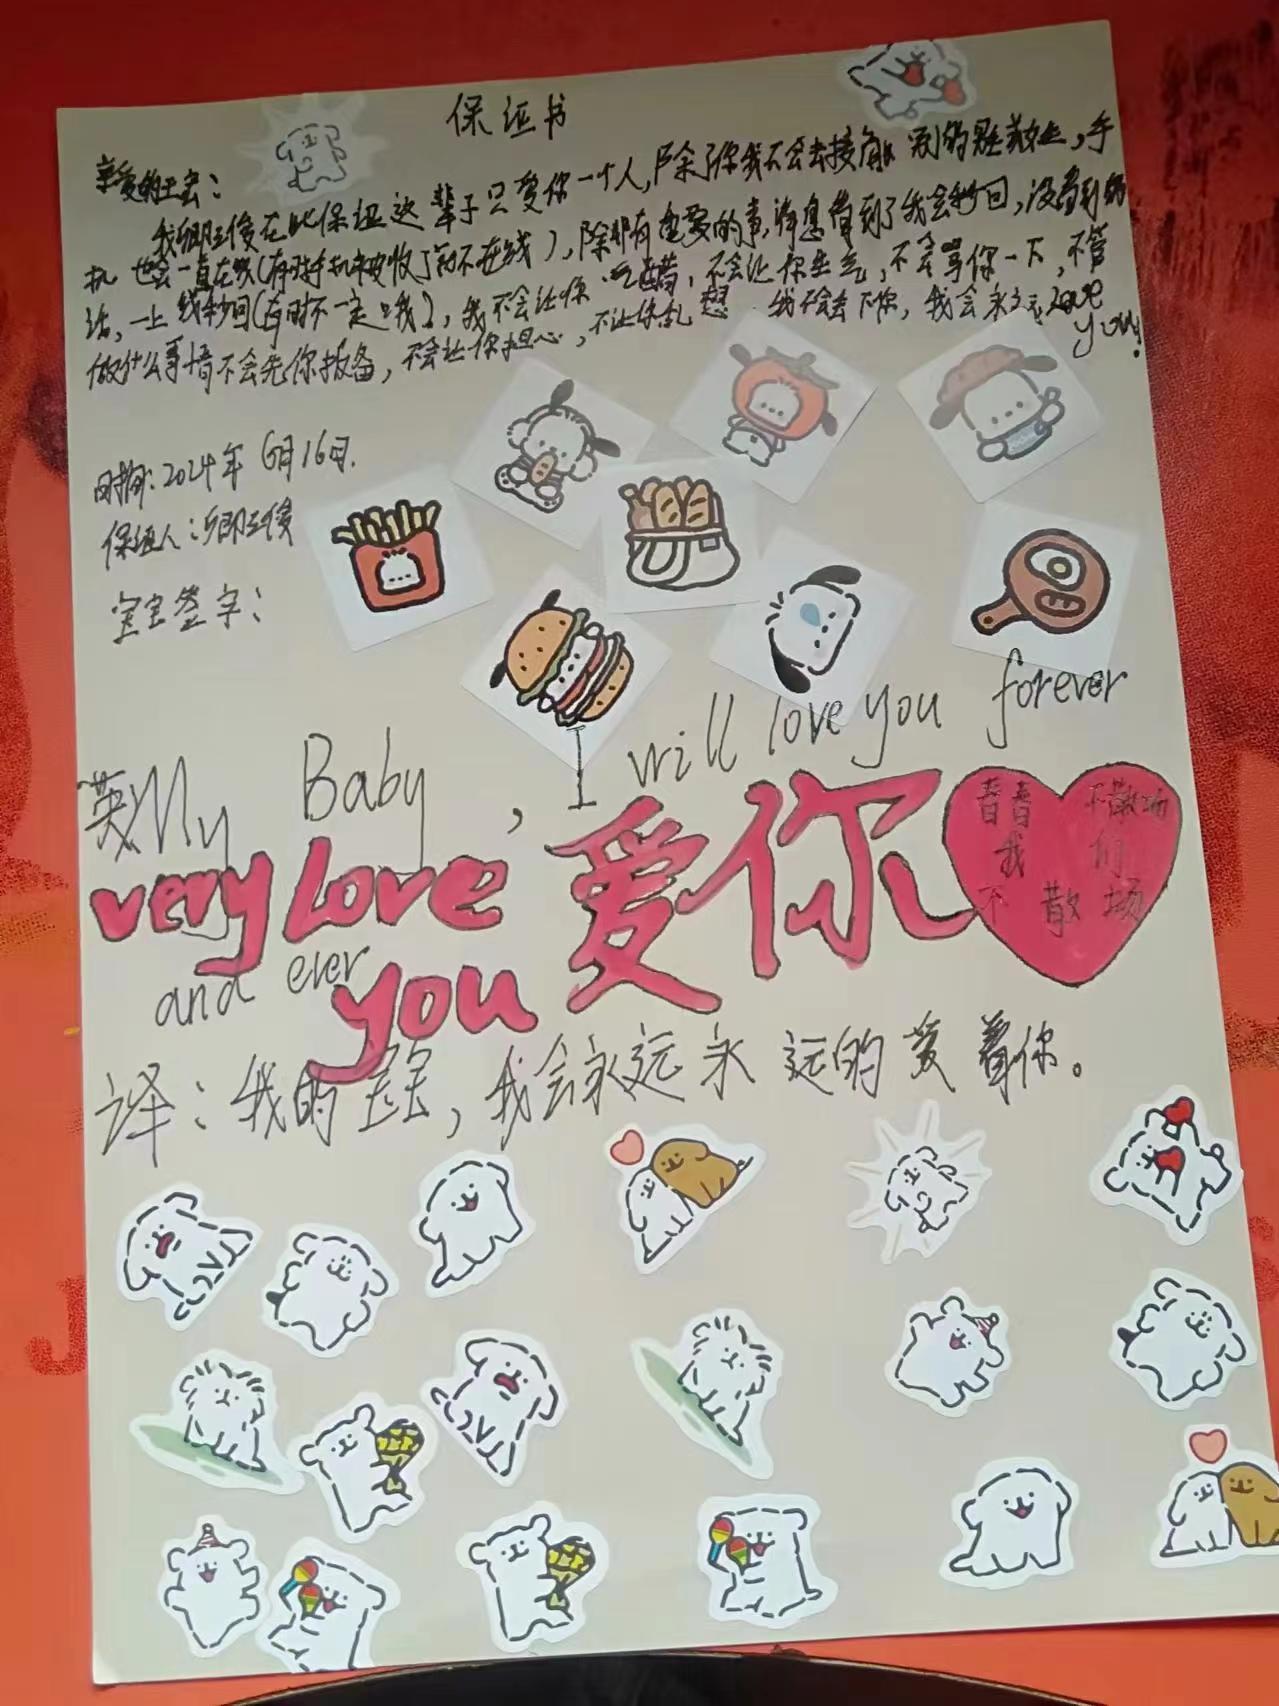 保证书
亲爱的宝宝：
我在此保证这辈子只爱你一个人，除了你我不会去接触别的异
机也会一直在线(有时手机被收了的不在线)，除非有重要的事，消息看到了我会秒回，没看到的
话，一上线秒回(有时不一定上线)，我不会让你吃醋，不会让你生气，不会等你一下，不管
做什么事情不会先你报备，不会让你担心，不让你乱想，我不会丢下你，我会永远Love
you!
日期：2024年6月16日.
保证人：
宝宝签字：
英My Baby , I will love you forever
very Love 爱你
and ever
you
青春不散场
我们
不散场
译：我的宝宝，我会永远永远的爱着你。